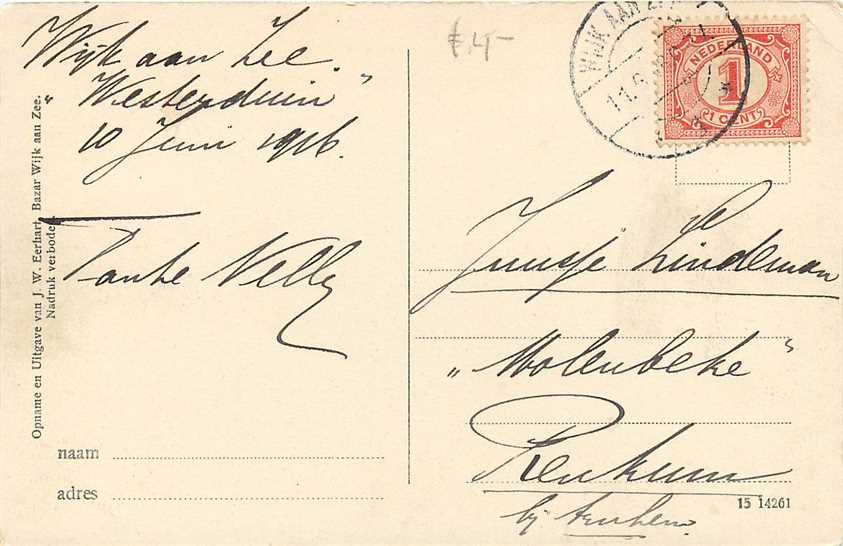 Wijk aan Zee.
"Westerduin"
10 Juni 1916.
Tante Nelly
Opname en Uitgave van J. W. Eerhart, Bazar Wijk aan Zee.
Nadruk verboden
naam
adres
ƒ 4,-
WIJK AAN ZEE
NEDERLAND
1
1 CENT
Juusje Lindeman
"Molenbeke"
Renkum
bij Arnhem.
15 14261